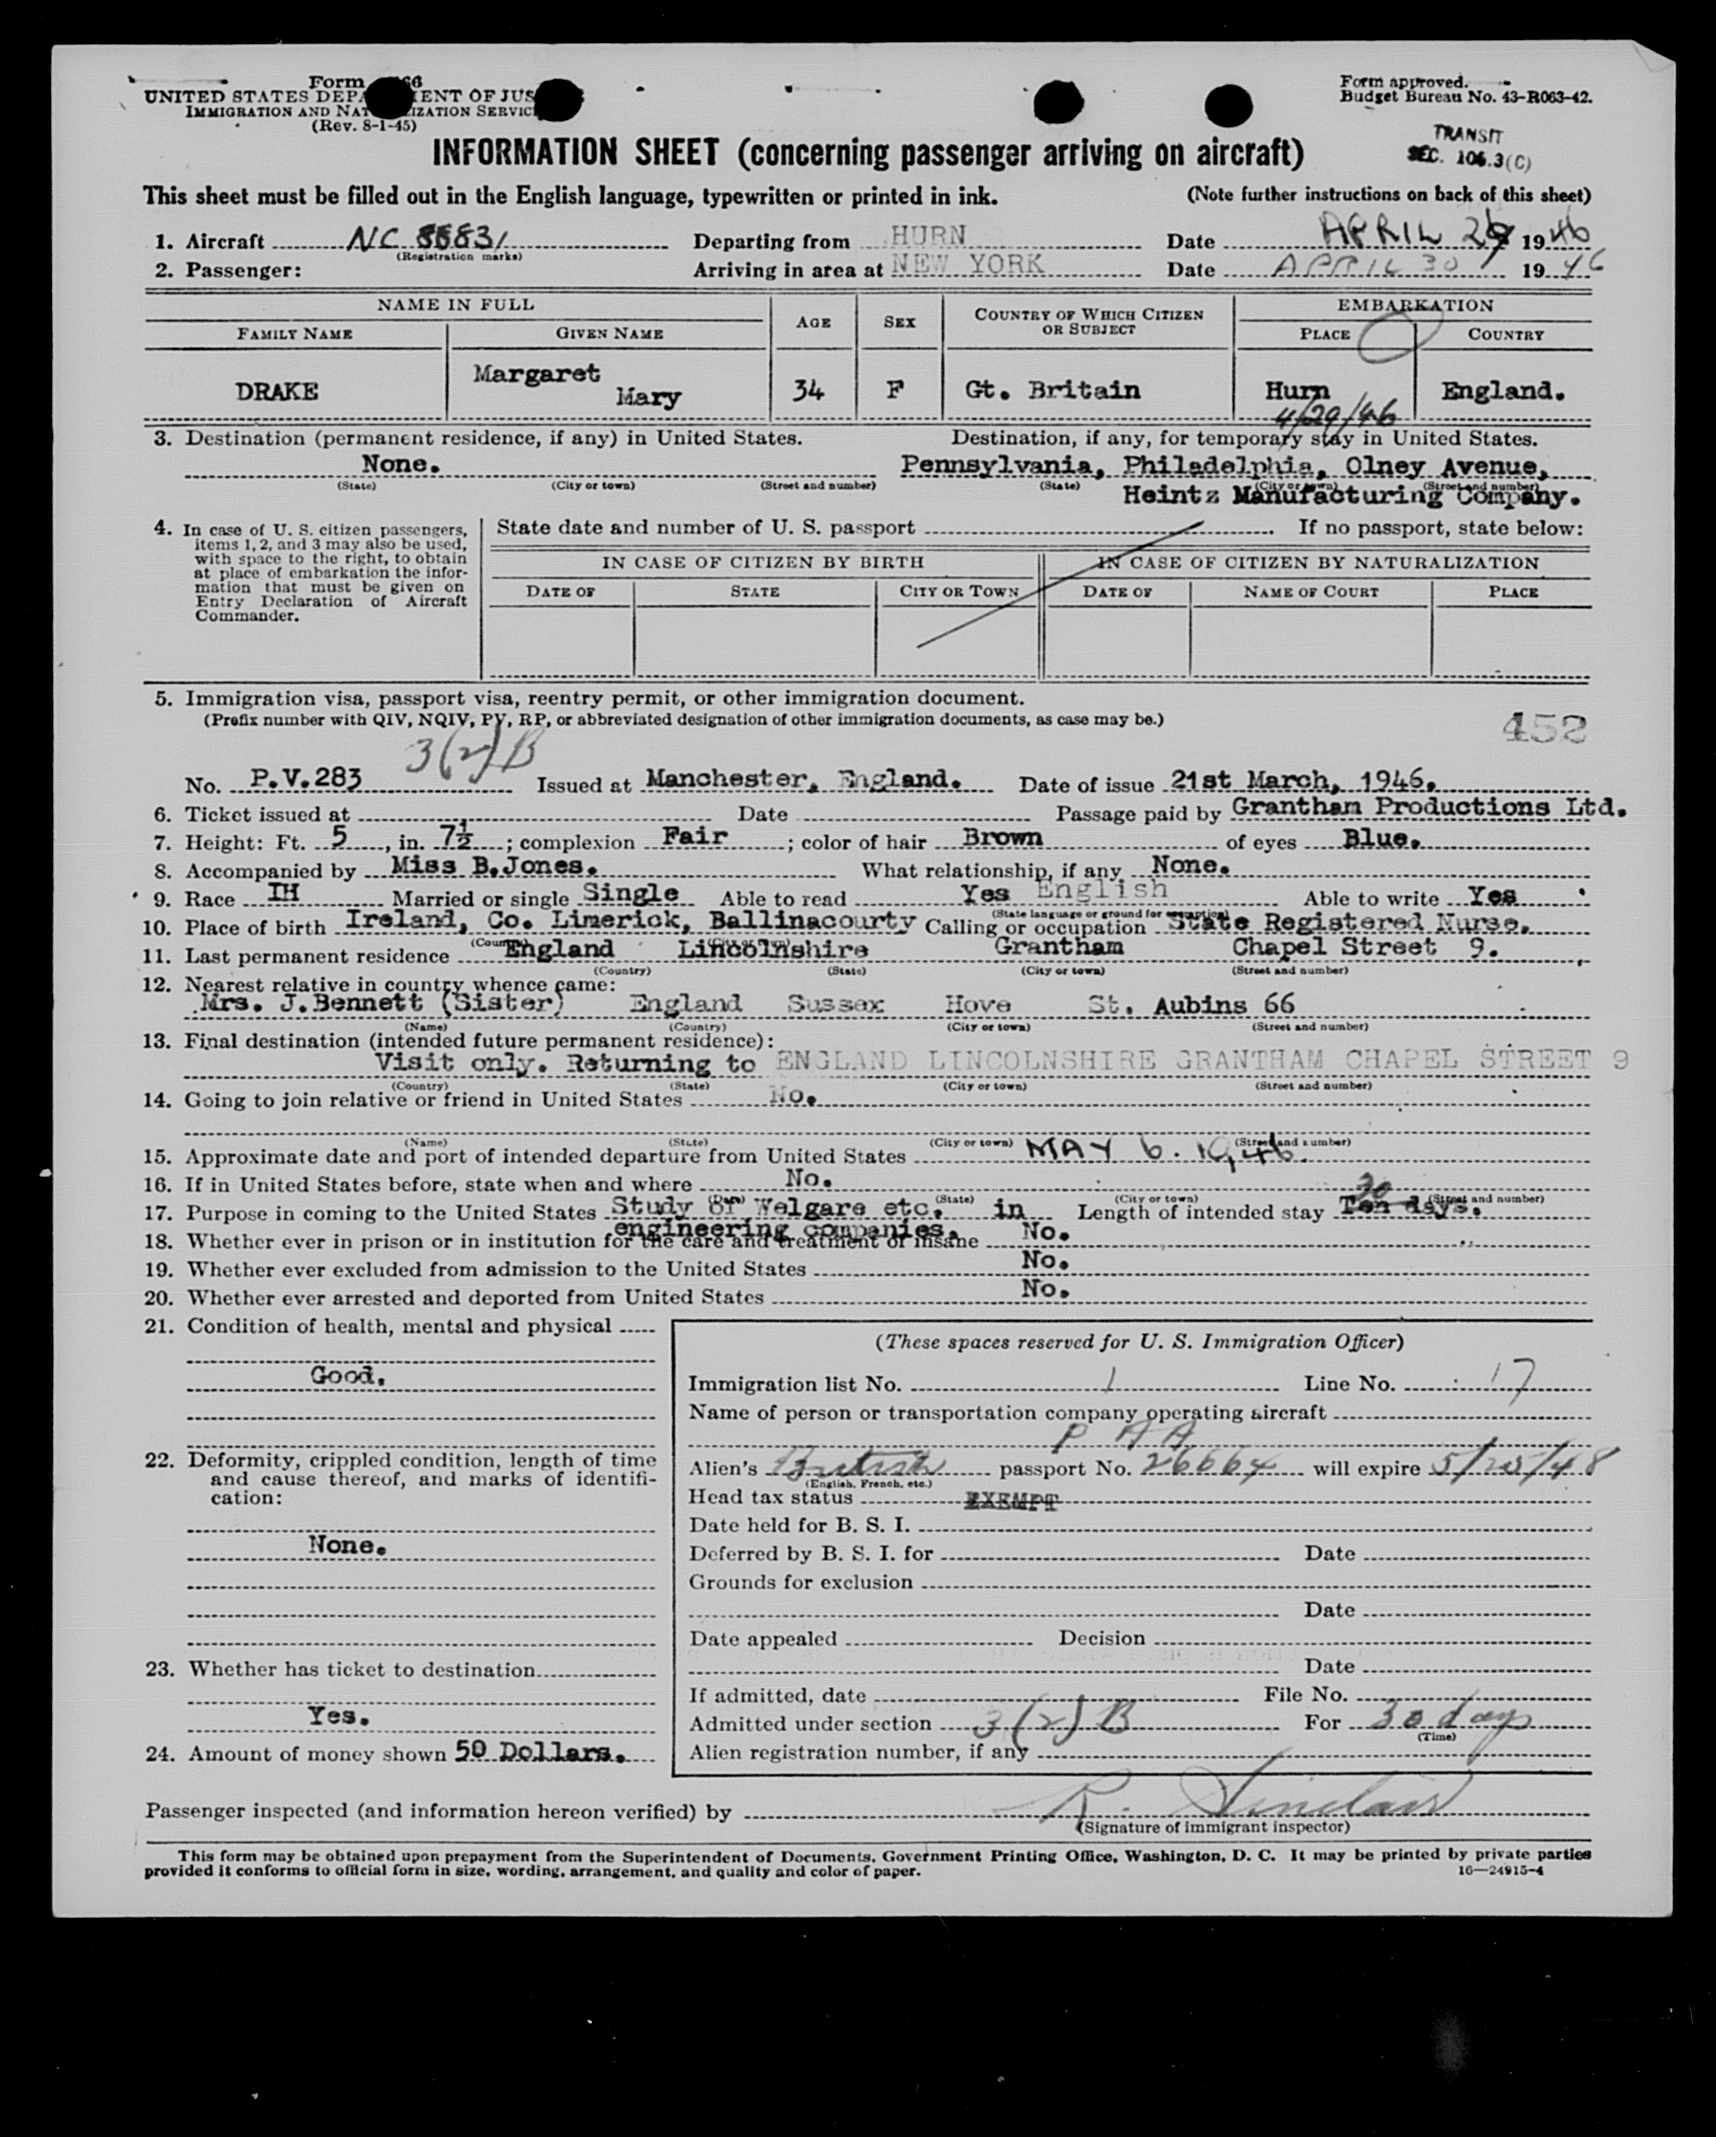 Form 66
UNITED STATES DEPA ENT OF JUS
IMMIGRATION AND NAT IZATION SERVIC
(Rev. 8-1-45)
Form approved.
Budget Bureau No. 43-R063-42.
TRANSIT
SEC. 106.3(C)
INFORMATION SHEET (concerning passenger arriving on aircraft)
This sheet must be filled out in the English language, typewritten or printed in ink. (Note further instructions on back of this sheet)
1. Aircraft NC 88831 Departing from HURN Date APRIL 29 1946
(Registration marks)
2. Passenger: Arriving in area at NEW YORK Date APRIL 30 1946
NAME IN FULL AGE SEX COUNTRY OF WHICH CITIZEN OR SUBJECT EMBARKATION
FAMILY NAME GIVEN NAME PLACE COUNTRY
DRAKE Margaret Mary 34 F Gt. Britain Hurn England.
4/29/46
3. Destination (permanent residence, if any) in United States. Destination, if any, for temporary stay in United States.
None. Pennsylvania, Philadelphia, Olney Avenue,
(State) (City or town) (Street and number) (State) (City or town) (Street and number)
Heintz Manufacturing Company.
4. In case of U. S. citizen passengers, items 1, 2, and 3 may also be used, with space to the right, to obtain at place of embarkation the information that must be given on Entry Declaration of Aircraft Commander.
State date and number of U. S. passport If no passport, state below:
IN CASE OF CITIZEN BY BIRTH IN CASE OF CITIZEN BY NATURALIZATION
DATE OF STATE CITY OR TOWN DATE OF NAME OF COURT PLACE
5. Immigration visa, passport visa, reentry permit, or other immigration document.
(Prefix number with QIV, NQIV, PV, RP, or abbreviated designation of other immigration documents, as case may be.)
452
3(2)B
No. P.V.283 Issued at Manchester, England. Date of issue 21st March, 1946.
6. Ticket issued at Date Passage paid by Grantham Productions Ltd.
7. Height: Ft. 5, in. 7½; complexion Fair; color of hair Brown of eyes Blue.
8. Accompanied by Miss B.Jones. What relationship, if any None.
9. Race IH Married or single Single Able to read Yes English Able to write Yes
(State language or ground for exemption)
10. Place of birth Ireland, Co. Limerick, Ballinacourty Calling or occupation State Registered Nurse.
(Country) (City or town)
11. Last permanent residence England Lincolnshire Grantham Chapel Street 9.
(Country) (State) (City or town) (Street and number)
12. Nearest relative in country whence came:
Mrs. J.Bennett (Sister) England Sussex Hove St. Aubins 66
(Name) (Country) (City or town) (Street and number)
13. Final destination (intended future permanent residence):
Visit only. Returning to ENGLAND LINCOLNSHIRE GRANTHAM CHAPEL STREET 9
(Country) (State) (City or town) (Street and number)
14. Going to join relative or friend in United States No.
(Name) (State) (City or town) (Street and number)
15. Approximate date and port of intended departure from United States MAY 6. 1946.
16. If in United States before, state when and where No.
(Date) (State) (City or town) (Street and number)
17. Purpose in coming to the United States Study of Welgare etc. in Length of intended stay Ten days. 30
engineering companies.
18. Whether ever in prison or in institution for the care and treatment of insane No.
19. Whether ever excluded from admission to the United States No.
20. Whether ever arrested and deported from United States No.
21. Condition of health, mental and physical
Good.
22. Deformity, crippled condition, length of time and cause thereof, and marks of identification:
None.
23. Whether has ticket to destination
Yes.
24. Amount of money shown 50 Dollars.
(These spaces reserved for U. S. Immigration Officer)
Immigration list No. 1 Line No. 17
Name of person or transportation company operating aircraft
P A A
Alien's British passport No. 26664 will expire 5/25/48
(English, French, etc.)
Head tax status EXEMPT
Date held for B. S. I.
Deferred by B. S. I. for Date
Grounds for exclusion
Date
Date appealed Decision
Date
If admitted, date File No.
Admitted under section 3(2)B For 30 days
(Time)
Alien registration number, if any
Passenger inspected (and information hereon verified) by R. Sinclair
(Signature of immigrant inspector)
This form may be obtained upon prepayment from the Superintendent of Documents, Government Printing Office, Washington, D. C. It may be printed by private parties
provided it conforms to official form in size, wording, arrangement, and quality and color of paper. 16—24915-4